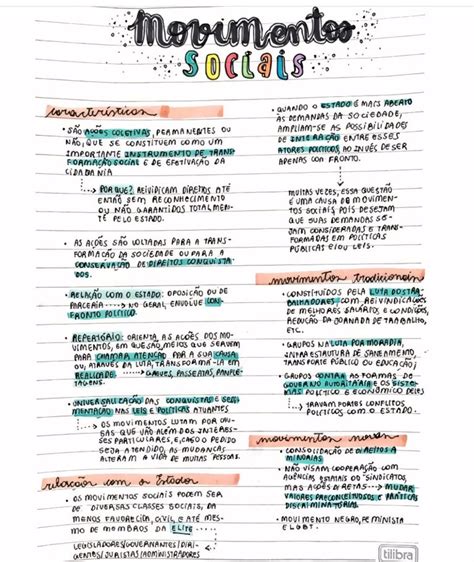 Movimentos
Sociais
características
• SÃO AÇÕES COLETIVAS, PERMANENTES OU
NÃO, QUE SE CONSTITUEM COMO UM
IMPORTANTE INSTRUMENTO DE TRANS-
FORMAÇÃO SOCIAL E DE EFETIVAÇÃO DA
CIDADANIA
POR QUE? REIVIDICAM DIREITOS ATÉ
ENTÃO SEM RECONHECIMENTO
OU NÃO GARANTIDOS TOTALMEN-
TE PELO ESTADO.
• AS AÇÕES SÃO VOLTADAS PARA A TRANS-
FORMAÇÃO DA SOCIEDADE OU PARA A
CONSERVAÇÃO DE DIREITOS CONQUISTA-
DOS.
• RELAÇÃO COM O ESTADO: OPOSIÇÃO OU DE
PARCERIA ...> NO GERAL, ENVOLVE CON-
FRONTO POLÍTICO.
• REPERTÓRIO: ORIENTA AS AÇÕES DOS MO-
VIMENTOS, EM QUE SÃO MEIOS QUE SERVEM
PARA CHAMAR ATENÇÃO POR A SUA CAUSA
OU, ATRAVÉS DA LUTA, TRANSFORMA-LA EM
REALIDADE ...> GREVES, PASSEATAS, PANFLE-
TAGENS.
• UNIVERSALIZAÇÃO DAS CONQUISTAS E SEDI-
MENTAÇÃO NAS LEIS E POLÍTICAS ATUANTES
OS MOVIMENTOS LUTAM POR CAU-
SAS QUE VÃO ALÉM DOS INTERES-
SES PARTICULARES, E, CASO O PEDIDO
SEJA ATENDIDO, AS MUDANÇAS
ALTERAM A VIDA DE MUITAS PESSOAS.
relação com o Estado
• OS MOVIMENTOS SOCIAIS PODEM SER
DE DIVERSAS CLASSES SOCIAIS, DA
MENOS FAVORECIDA, CIVIL, E ATÉ MES-
MO DE MEMBROS DA ELITE
LEGISLADORES/GOVERNANTES/DIRI-
GENTES/JURISTAS/ADMINISTRADORES
• QUANDO O ESTADO É MAIS ABERTO
ÀS DEMANDAS DA SOCIEDADE,
AMPLIAM-SE AS POSSIBILIDADES
DE INTERAÇÃO ENTRE ESSES
ATORES POLÍTICOS, AO INVÉS DE SER
APENAS CON FRONTO.
MUITAS VEZES, ESSA QUESTÃO
É UMA CAUSA DO MOVIMEN-
TOS SOCIAIS, POIS DESEJAM
QUE SUAS DEMANDAS SE-
JAM CONSIDERADAS E TRANS-
FORMADAS EM POLÍTICAS
PÚBLICAS E/OU LEIS.
movimentos tradicionais
• CONSTITUÍDOS PELA LUTA DOS TRA-
BALHADORES COM REIVINDICAÇÕES
DE MELHORES SALÁRIOS, E CONDIÇÕES,
REDUÇÃO DA JORNADA DE TRABALHO,
ETC.
• GRUPOS NA LUTA POR MORADIA,
INFRAESTRUTURA DE SANEAMENTO,
TRANSPORTE PÚBLICO OU EDUCAÇÃO
• GRUPOS CONTRA AS FORMAS DE
GOVERNO AUTORITÁRIA E OS SISTE-
MAS POLÍTICO E ECONÔMICO PELOS
TRAVAM FORTES CONFLITOS
POLÍTICOS COM O ESTADO.
movimentos novos
• CONSOLIDAÇÃO DE DIREITOS A
MINORIAS
• NÃO VISAM COOPERAÇÃO COM
AGÊNCIAS ESTATAIS OU SINDICATOS,
MAS AÇÕES DIRETAS ...> MUDAR
VALORES PRECONCEITUOSOS E PRÁTICAS
DISCRIMINATÓRIAS.
• MOVIMENTO NEGRO, FEMINISTA
E LGBT.
tilibra